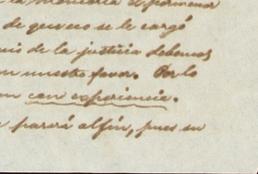 de que no se le cargó
de la justicia debemos
nuestro favor. Por lo
con experiencia.
parará al fin, pues su